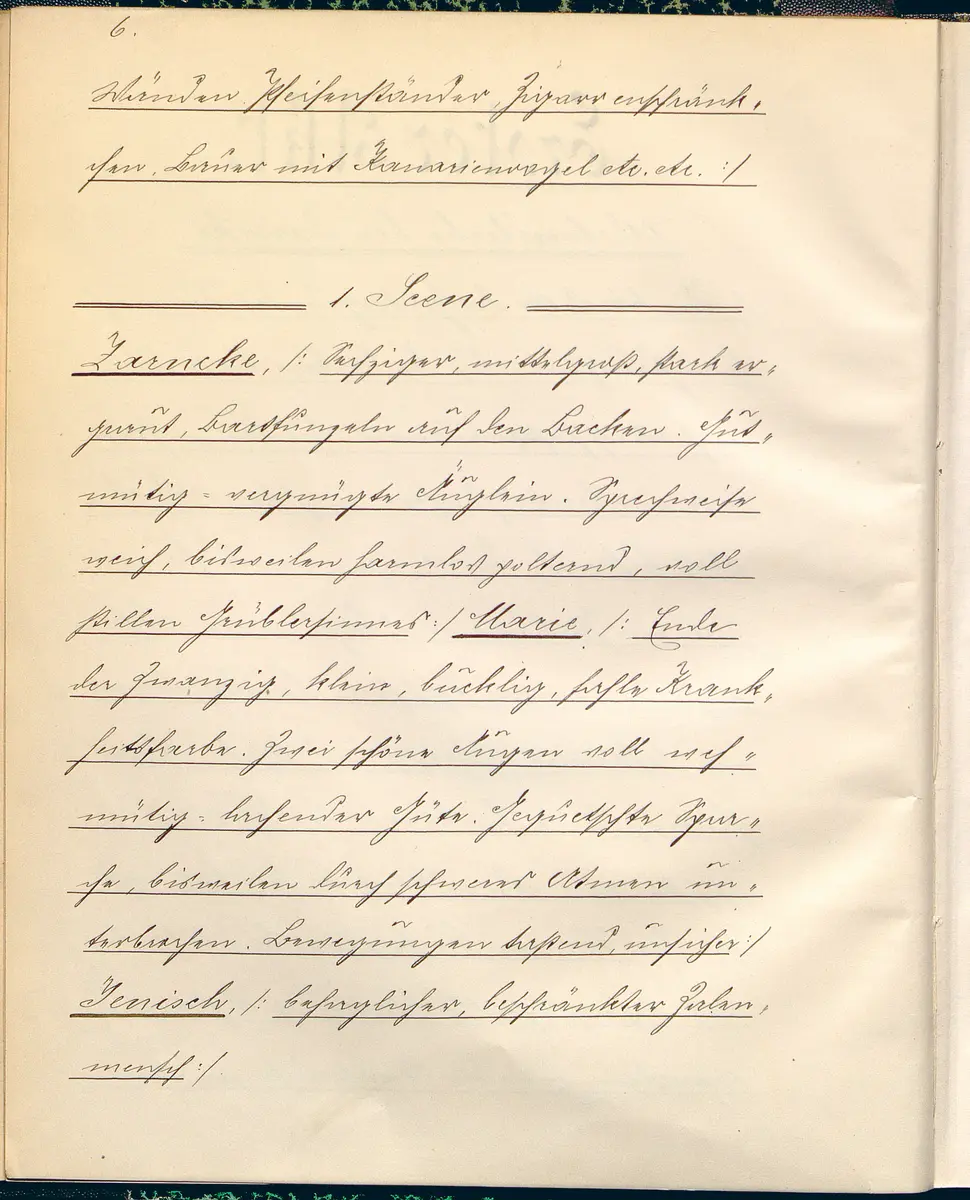 6.
Wänden. Pfeifenständer, Zigarrenschränk-
chen, Bauer mit Kanarienvogel etc. etc. :/
1. Scene.
Zarncke, /: Sechziger, mittelgroß, stark er-
graut, Bartfunzeln auf den Backen. Gut-
mütig-vergnügte Äuglein. Sprechweise
weich, bisweilen harmlos polternd, voll
stillen Grüblersinnes :/ Marie, /: Ende
der Zwanzig, klein, bucklig, fahle Krank-
heitsfarbe. Zwei schöne Augen voll weh-
mütig-lachender Güte. Gequetschte Spra-
che, bisweilen durch schweres Atmen un-
terbrochen. Bewegungen tastend, unsicher :/
Jenisch, /: behaglicher, beschränkter Zalen-
mensch :/